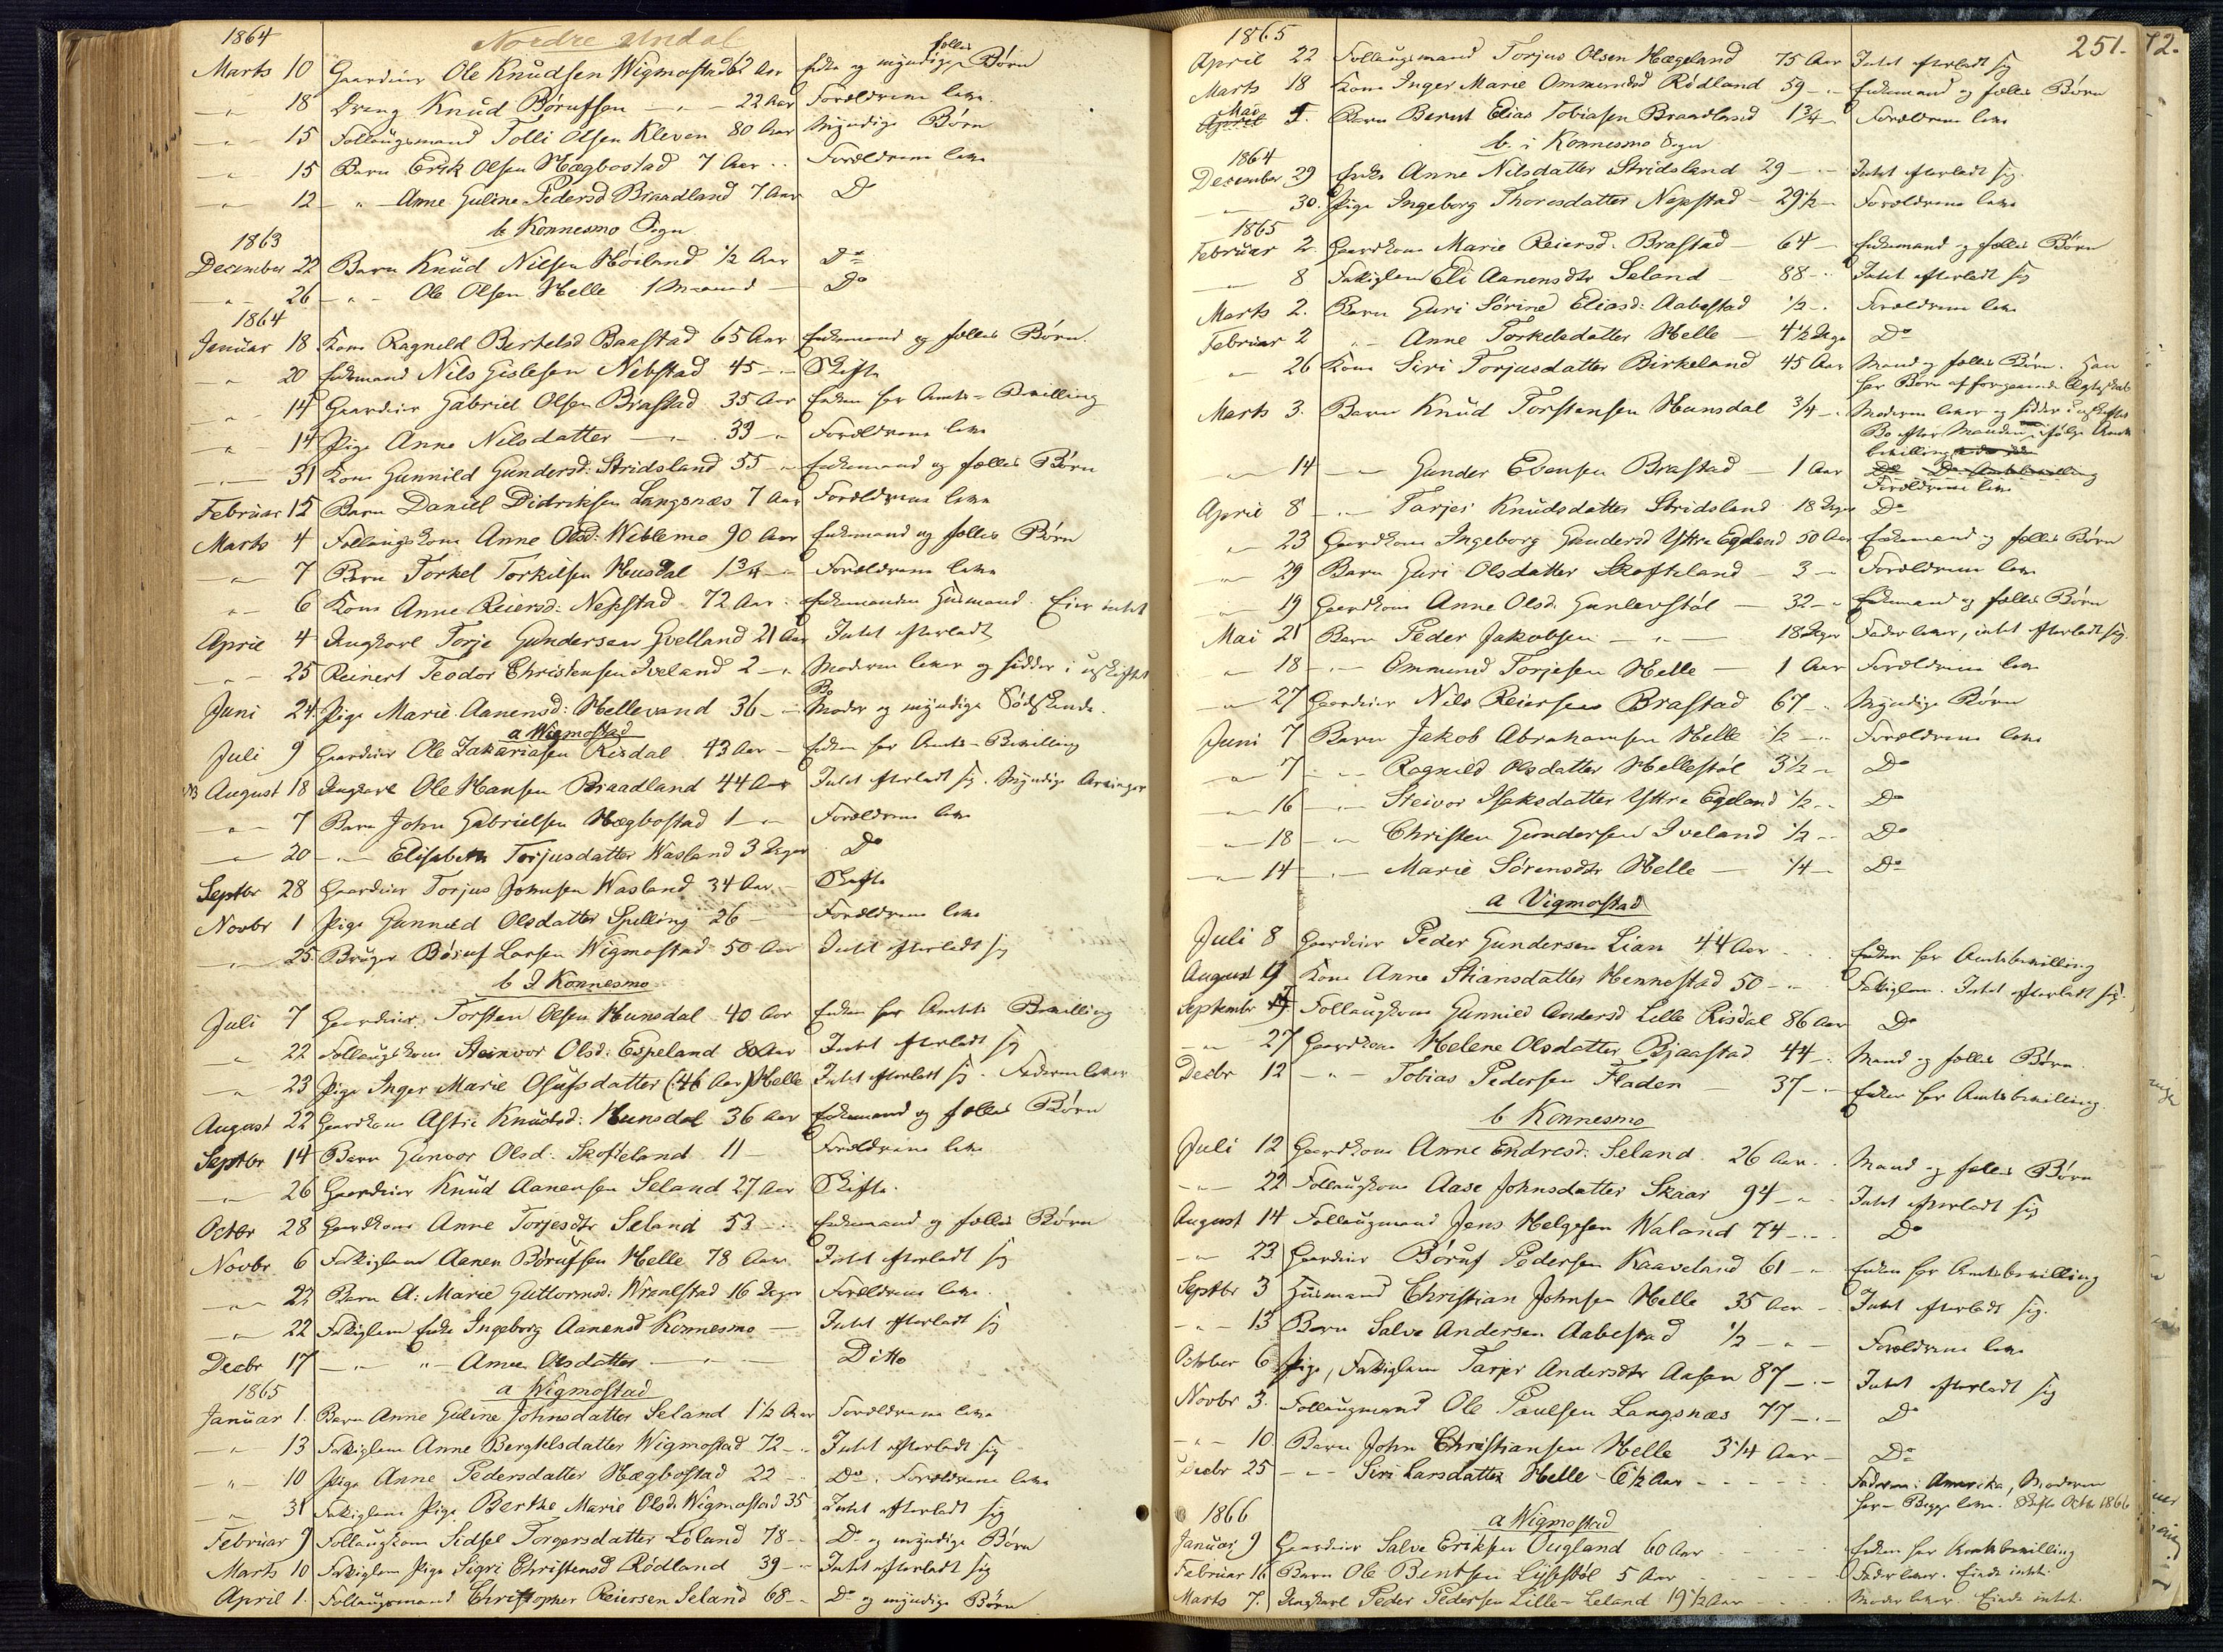 1864 Nordre Undal
Marts 10 Gaardeier Ole Knudsen Wigmostad 62 Aar Enke og myndige fælles Børn
" 18 Dreng Knud Børufsen " 22 Aar Forældrene leve
" 15 Follaugsmand Tolli Olsen Kleven 80 Aar Myndige Børn
" 15 Barn Erik Olsen Hægbostad 7 Aar Forældrene leve
" 12 " Anne Guline Pedersd Braadland 7 Aar Do
b Konnesmo Sogn
1863
December 22 Barn Knud Nilsen Høiland ½ Aar Do
" 26 " Ole Olsen Helle 1 Maaned Do
1864
Januar 18 Kone Ragnild Bertelsd Baastad 65 Aar Enkemand og fælles Børn.
" 20 Enkemand Nils Gislesen Nebstad 45 " Skifte
" 14 Gaardeier Gabriel Olsen Brastad 35 Aar Enken har Amts-Bevilling
" 14 Pige Anne Nilsdatter " 33 " Forældrene leve
" 31 Kone Gunnild Gundersd: Stridsland 55 " Enkemand og fælles Børn
Februar 15 Barn Daniel Didriksen Langsnæs 7 Aar Forældrene leve
Marts 4 Follaugskone Anne Olsd: Weblemo 90 Aar Enkemand og fælles Børn
" 7 Barn Torkel Torkilsen Husdal 1¾ " Forældrene leve
" 6 Kone Anne Reiersd: Nepstad 72 Aar Enkemanden Husmand. Eier intet
April 4 Ungkarl Torje Gundersen Gvelland 21 Aar Intet efterladt
" 25 Reinert Teodor Christensen Iveland 2 " Moderen lever og sidder i uskiftet Bo
Juni 24. Pige Marie Aanensd: Hellevand 36 " Moder og myndige Sødskende.
a Wigmostad
Juli 9 Gaardeier Ole Zakariasen Risdal 43 Aar Enken har Amts-Bevilling
August 18 Ungkarl Ole Hansen Braadland 44 Aar Intet efterladt sig. Myndige Arvinger
" 7 Barn John Gabrielsen Hægbostad 1 " Forældrene leve
" 20 " Elisabeth Torjusdatter Wasland 3 Dage Do
Septbr 28 Gaardeier Torjus Johnsen Wasland 34 Aar Skifte
Novbr 1 Pige Gunnild Olsdatter Spilling 26 Forældrene leve
" 25. Bruger Børuf Larsen Wigmostad 50 Aar Intet efterladt sig
b I Konnesmo
Juli 7 Gaardeier Torsten Olsen Hunsdal 40 Aar Enken har Amtets Bevilling
" 22 Follaugskone Steinvor Olsd: Espeland 80 Aar Intet efterladt sig
" 23 Pige Inger Marie Olufsdatter (46 Aar) Helle Intet efterladt sig. Faderen lever
August 22 Gaardkone Astri Knudsd: Hunsdal 36 Aar Enkemand og fælles Børn
Septbr 14 Barn Gunvor Olsd: Skofteland 11 Forældrene leve
" 26 Gaardeier Knud Aanensen Seland 27 Aar Skifte.
Octbr 28 Gaardkone Anne Torjesdtr Seland 53 Enkemand og fælles Børn
Novbr. 6 Fattiglem Aanen Børufsen Helle 78 Aar Intet efterladt sig
" 22 Barn A: Marie Guttormsd: Wraalstad 16 Dage Forældrene leve.
" 22 Fattiglem Enke Ingeborg Aanensd Konnesmo Intet efterladt sig
Decbr 17 " " Anne Olsdatter " Ditto
1865 a Wigmostad
Januar 1. Barn Anne Guline Johnsdatter Seland 1½ Aar Forældrene leve
" 13 Fattiglem Anne Bergtelsdatter Wigmostad 72 " Intet efterladt sig
" 10 Pige Anne Pedersdatter Hægbostad 22 Do. Forældrene leve
" 31 Fattiglem Pige Berthe Marie Olsd. Wigmostad 35 Intet efterladt sig
Februar 9 Follaugkone Sidsel Torgersdatter Løland 78 Do og myndige Børn
Marts 10 Fattiglem Pige Sigri Christensd Rødland 39 " Intet efterladt sig
April 1. Follaugsmand Christopher Reiersen Seland 68 Do og myndige Børn
251. 72.
1865
April 22 Follaugsmand Torjus Olsen Hægeland 75 Aar Intet efterladt sig
Marts 18 Kone Inger Marie Ommundsd Rødland 59 " Enkemand og fælles Børn
Mai April 5. Barn Bernt Elias Tobiasen Braadland 1¾ Forældrene leve
b. i Konnesmo Sogn
1864
December 29 Enke Anne Nilsdatter Stridsland 29 Intet efterladt sig.
" 30. Pige Ingeborg Thoresdatter Nepstad 29½ Forældrene leve
1865
Februar 2. Gaardkone Marie Reiersd. Brastad 64 Enkemand og fælles Børn
" 8 Fattiglem Eli Aanensdtr Seland 88 Intet efterladt sig
Marts 2. Barn Guri Sørine Eliasd: Aabestad ½ Forældrene leve
Februar 2 " Anne Torkelsdatter Helle 4½ Dage Do
" 26 Kone Siri Torjusdatter Birkeland 45 Aar Mand og fælles Børn. Han
har Børn af foregaaende Ægteskab
Marts 3. Barn Knud Torstensen Hunsdal ¾ Moderen lever og sidder i uskiftet
Bo efter Manden ifølge Amts
bevilling
" 14 " Gunder Evensen Brastad 1 Aar Do Do Amtsbevilling
Forældrene leve
April 8 " Tarjei Knudsdatter Stridsland 18 Dage Do
" 23 Gaardkone Ingeborg Gundersd Yttre Egeland 50 Aar Enkemand og fælles Børn
" 29 Barn Guri Olsdatter Skofteland 3 Forældrene leve
" 19 Gaardkone Anne Olsd. Gunlevstøl 32 Enkemand og fælles Børn
Mai 21 Barn Peder Jakobsen " 18 Dage Fader lever, intet efterladt sig.
" 18 " Ommund Torjesen Helle 1 Aar Forældrene leve
" 27 Gaardeier Nils Reiersen Brastad 67 Myndige Børn
Juni 7 Barn Jakob Abrahamsen Helle ½ Forældrene leve
" 7 " Ragnild Olsdatter Hellestøl 3½ Do
" 16 " Steivor Isaksdatter Yttre Egeland ½ Do
" 18 " Christen Gundersen Iveland ½ Do
" 14 " Marie Sørensdtr Helle ¼ Do
a Vigmostad
Juli 8 Gaardeier Peder Gundersen Lian 44 Aar Enken har Amtsbevilling
August 9 Kone Anne Stiansdatter Hennestad 50 Fattiglem. Intet efterladt sig.
Septembr Follaugkone Gunnild Andersd Lille Risdal 86 Aar Do
" 27 Gaardkone Helene Olsdatter Bjaastad 44 Mand og fælles Børn.
Decbr 12 " Tobias Pedersen Fladen 37 Enken har Amtsbevilling.
b Konnesmo
Juli 12 Gaardkone Anne Endresd: Seland 26 Aar Mand og fælles Børn
" 22 Follaugkone Aase Johnsdatter Skaar 94 Intet efterladt sig
August 14 Follaugmand Jens Helgesen Waland 74 Do
" 23 Gaardeier Børuf Pedersen Kaaveland 61 Enken har Amtsbevilling
Septbr 3 Husmand Christian Johnsen Helle 35 Aar Intet efterladt sig.
" 13 Barn Salve Andersen Aabestad ½ Forældrene leve
October 6 Pige, Fattiglem Tarjer Andersdtr Aasen 87 Intet efterladt sig
Novbr 3. Follaugmand Ole Paulsen Langsnæs 77 Do
" 10. Barn John Christiansen Helle 3¼ Aar Do
Decbr 25 " Siri Larsdatter Helle 6½ Aar Faderen i Amerika, Moderen
her – Begge leve. Skifte Octbr 1866
1866 a Wigmostad
Januar 9 Gaardeier Salve Eriksen Øugland 60 Aar Enken har Amtsbevilling
Februar 16 Barn Ole Bentsen Lyssestøl 5 Aar Fader lever. Eiede intet.
Marts 7. Ungkarl Peder Pedersen Lille-Leland 19½ Aar Moder lever. Eiede intet.